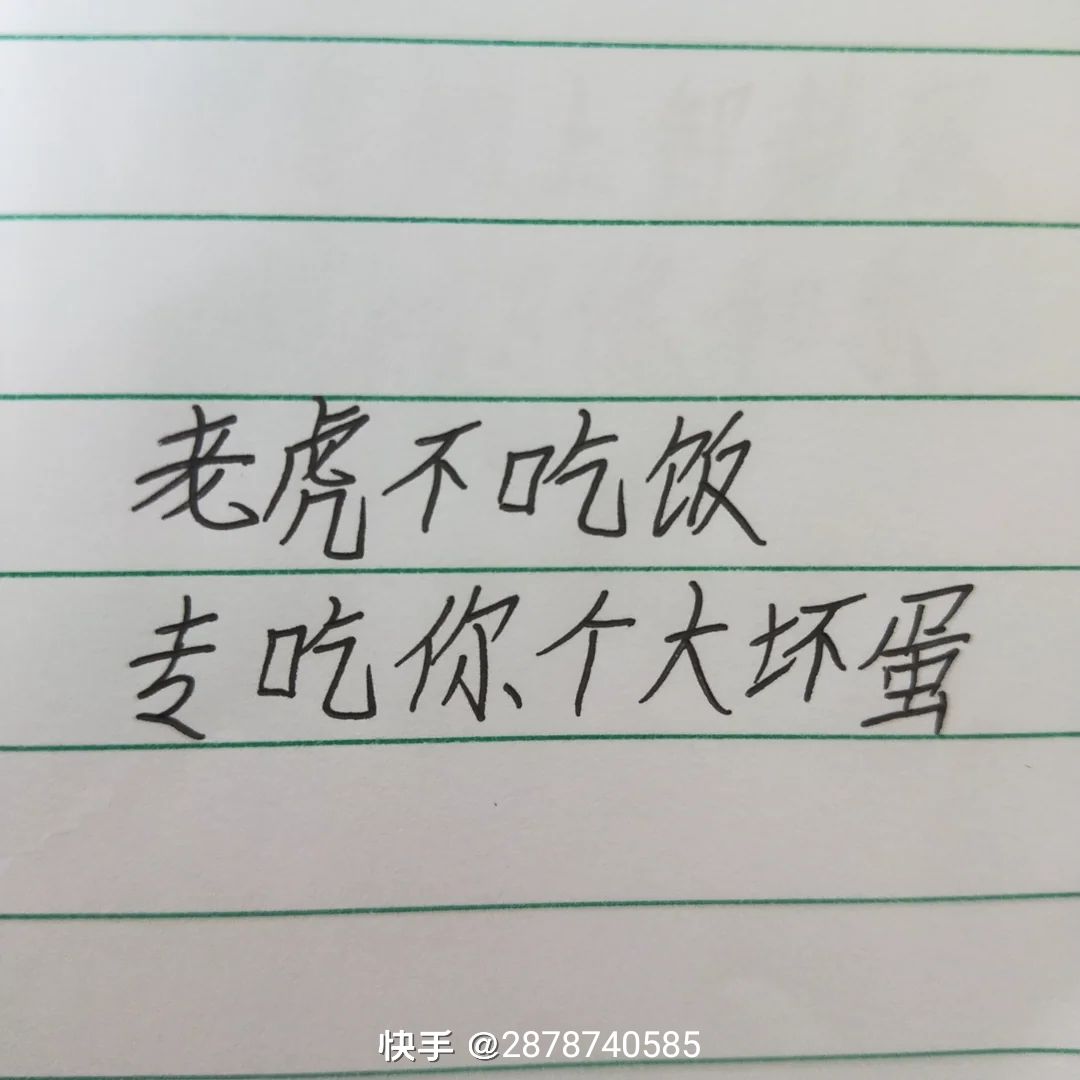 老虎不吃饭
专吃你个大坏蛋
快手 @2878740585